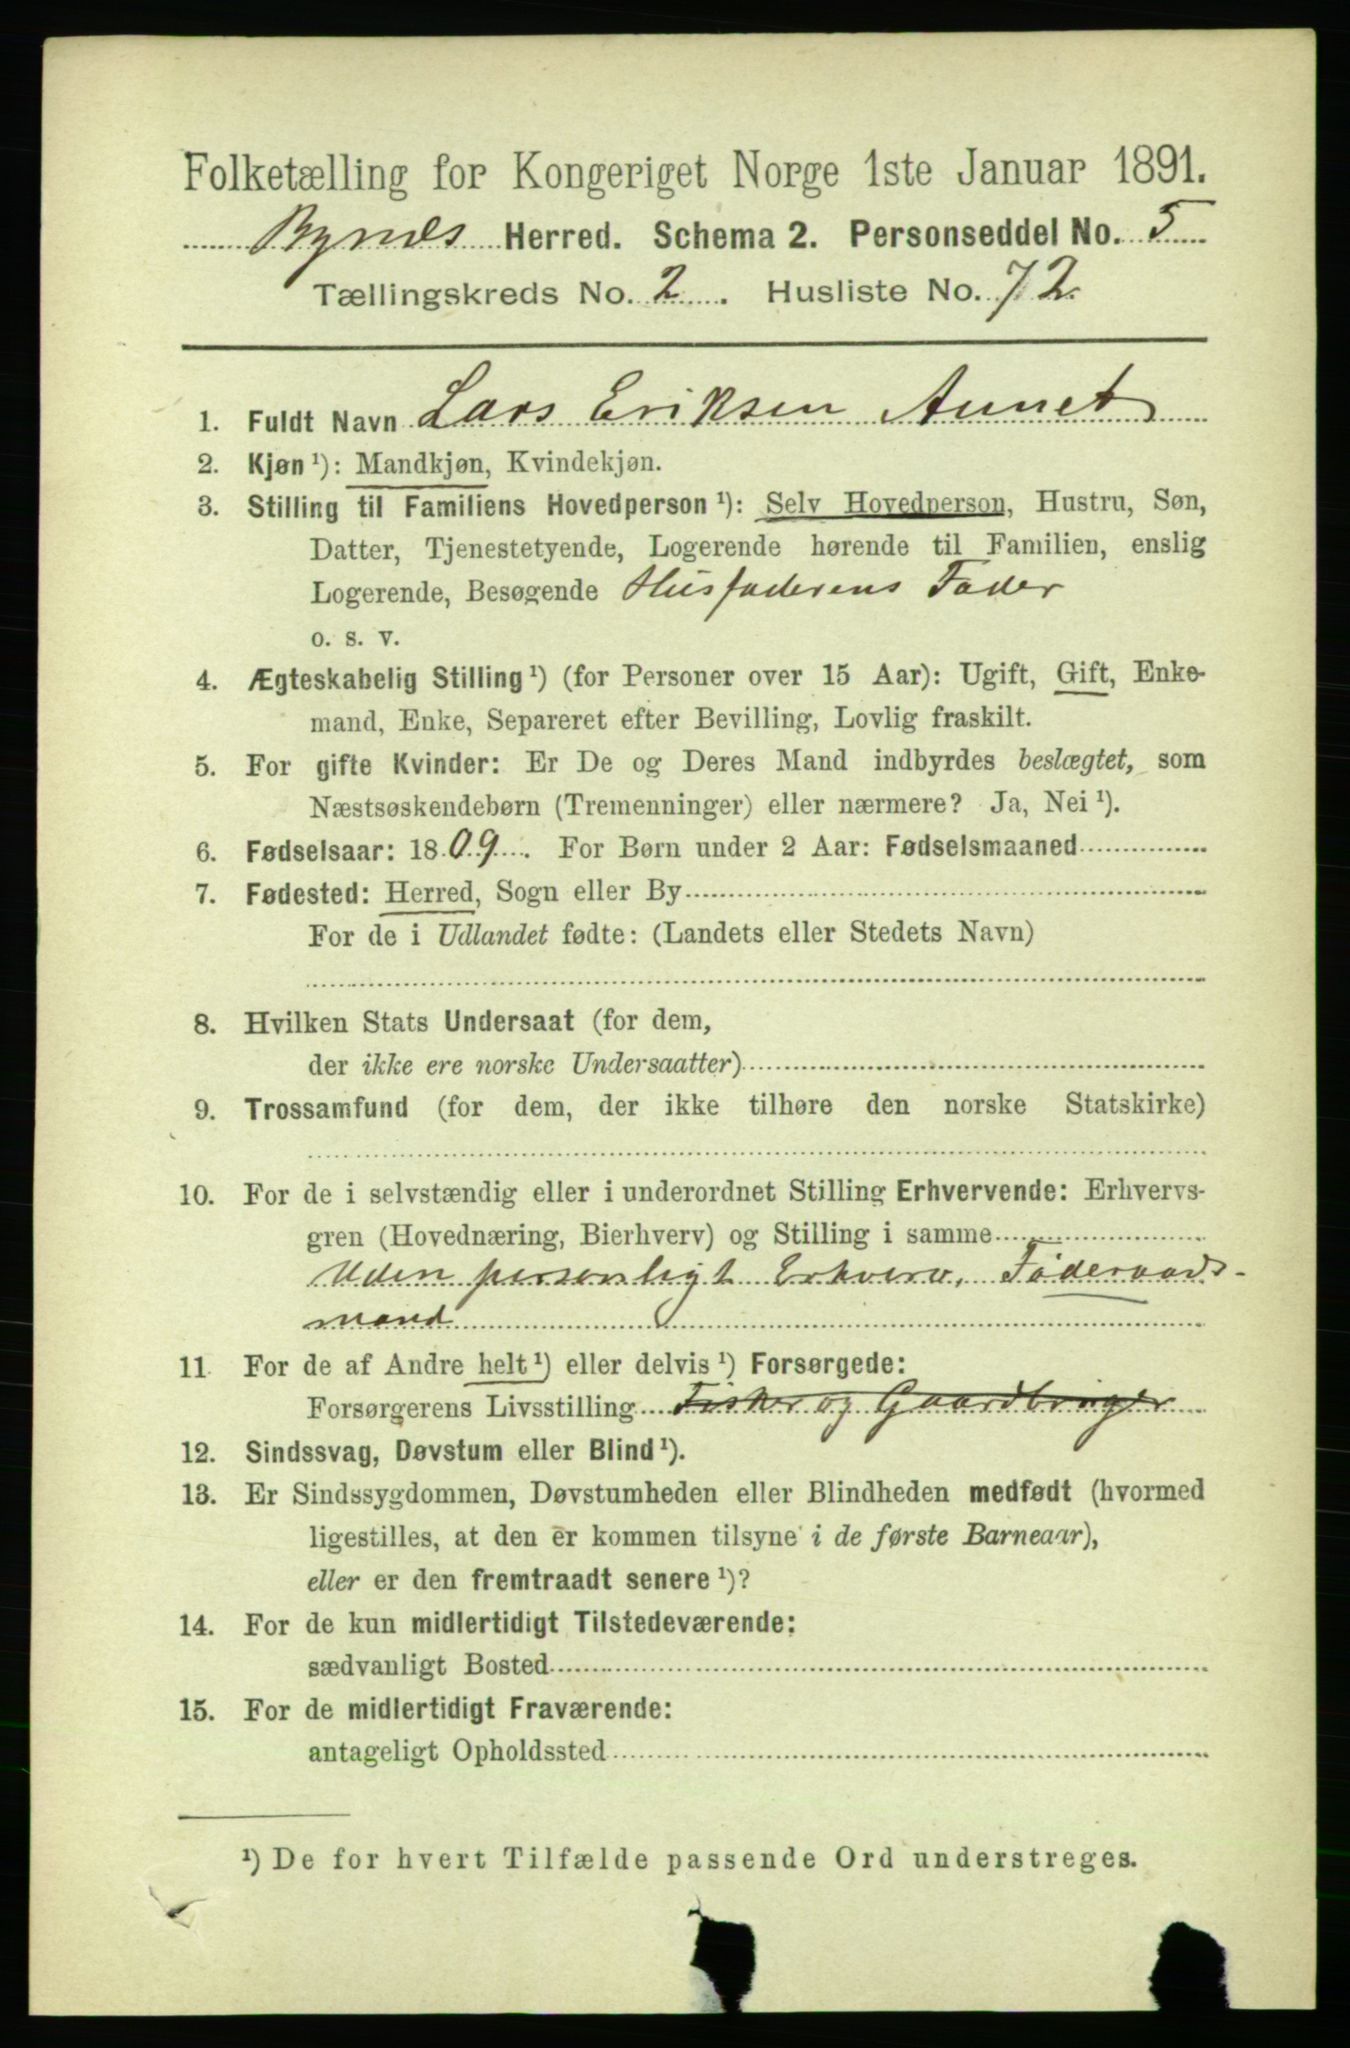 Folketælling for Kongeriget Norge 1ste Januar 1891.
Bynes Herred. Schema 2. Personseddel No. 5
Tællingskreds No. 2. Husliste No. 72.
1. Fuldt Navn Lars Eriksen Aunet
2. Kjøn ¹): Mandkjøn, Kvindekjøn.
3. Stilling til Familiens Hovedperson ¹): Selv Hovedperson, Hustru, Søn,
Datter, Tjenestetyende, Logerende hørende til Familien, enslig
Logerende, Besøgende Husfaderens Fader
o. s. v.
4. Ægteskabelig Stilling ¹) (for Personer over 15 Aar): Ugift, Gift, Enke-
mand, Enke, Separeret efter Bevilling, Lovlig fraskilt.
5. For gifte Kvinder: Er De og Deres Mand indbyrdes beslægtet, som
Næstsøskendebørn (Tremenninger) eller nærmere? Ja, Nei ¹).
6. Fødselsaar: 1809. For Børn under 2 Aar: Fødselsmaaned
7. Fødested: Herred, Sogn eller By
For de i Udlandet fødte: (Landets eller Stedets Navn)
8. Hvilken Stats Undersaat (for dem,
der ikke ere norske Undersaatter)
9. Trossamfund (for dem, der ikke tilhøre den norske Statskirke)
10. For de i selvstændig eller i underordnet Stilling Erhvervende: Erhvervs-
gren (Hovednæring, Bierhverv) og Stilling i samme
Uden personligt Erhverv, Föderaads-
mand
11 For de af Andre helt ¹) eller delvis ¹) Forsørgede:
Forsørgerens Livsstilling Fisker og Gaardbruger
12. Sindssvag, Døvstum eller Blind ¹).
13. Er Sindssygdommen, Døvstumheden eller Blindheden medfødt (hvormed
ligestilles, at den er kommen tilsyne i de første Barneaar),
eller er den fremtraadt senere ¹)?
14. For de kun midlertidigt Tilstedeværende:
sædvanligt Bosted
15. For de midlertidigt Fraværende:
antageligt Opholdssted
¹) De for hvert Tilfælde passende Ord understreges.